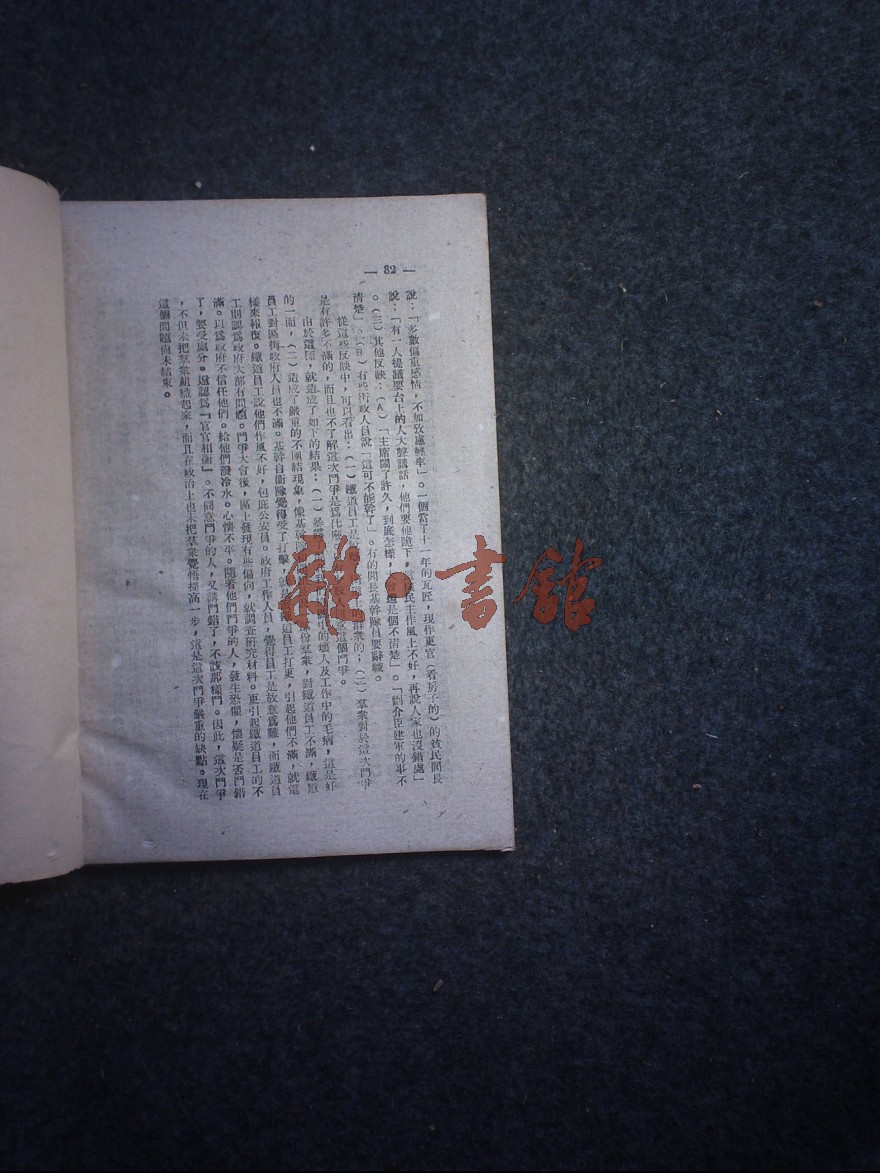 — 82 —
說：「多數偏重感情，不加攷慮輕率」。一個當了十一年的瓦匠，現作更官（看房子的）的貧民閭長
說：「有一人提議要台上的人大聲講話，他們要他跪下，民主作風上不好，再說人家也沒錯處」
。（三）其他反映：（A）「主席鬧了許久，到底怎樣，是個不清楚」。「劉介臣建軍的事不
清楚」。（B）有些街政人員說「這可不能幹了」。有的閭長基幹隊員要辭職。
從這些反映中，可以看出：（一）鐵道員工是群衆的；（二）羣衆對於這次鬥爭
是有許多不滿的，而且也不了解這次鬥爭是爲什麼這個鬥爭。
由於這種，就造成了如下的結果：（一）暴露的壞人及工作中的毛病，這是好
的一面，（二）造成了嚴重的不團結現象，像基幹份羣衆，對鐵道員工不滿，鐵道
員工對區街政府人員也不滿。基幹自衛隊覺得受了打擊，道員工打更，引起他們不滿，就這
樣來報復。鐵道員工說他們作風不好，包庇公安員。政府工作人員，覺得員工是故意爲難，而鐵道員
工則認爲政府大部有問題。鬥爭大會後，區上發現有些偏向，就調查研究材料。更引起鐵道員工的不
滿。以爲政府不信任他們。給他們潑冷水。心懷不平。隨着他們鬥爭的人，發生恐懼，懷疑是否鬥錯
了，要受處分。還認爲『官官相衛』。不同意鬥爭的人，又講鬥錯了，不該那樣鬥。因此，這次鬥爭
，不但未把羣衆組織起來，而且在政治上也未把羣衆覺悟提高一步，這是這次鬥爭嚴重的缺點。現在
這個問題尚未結束。
雜·書館